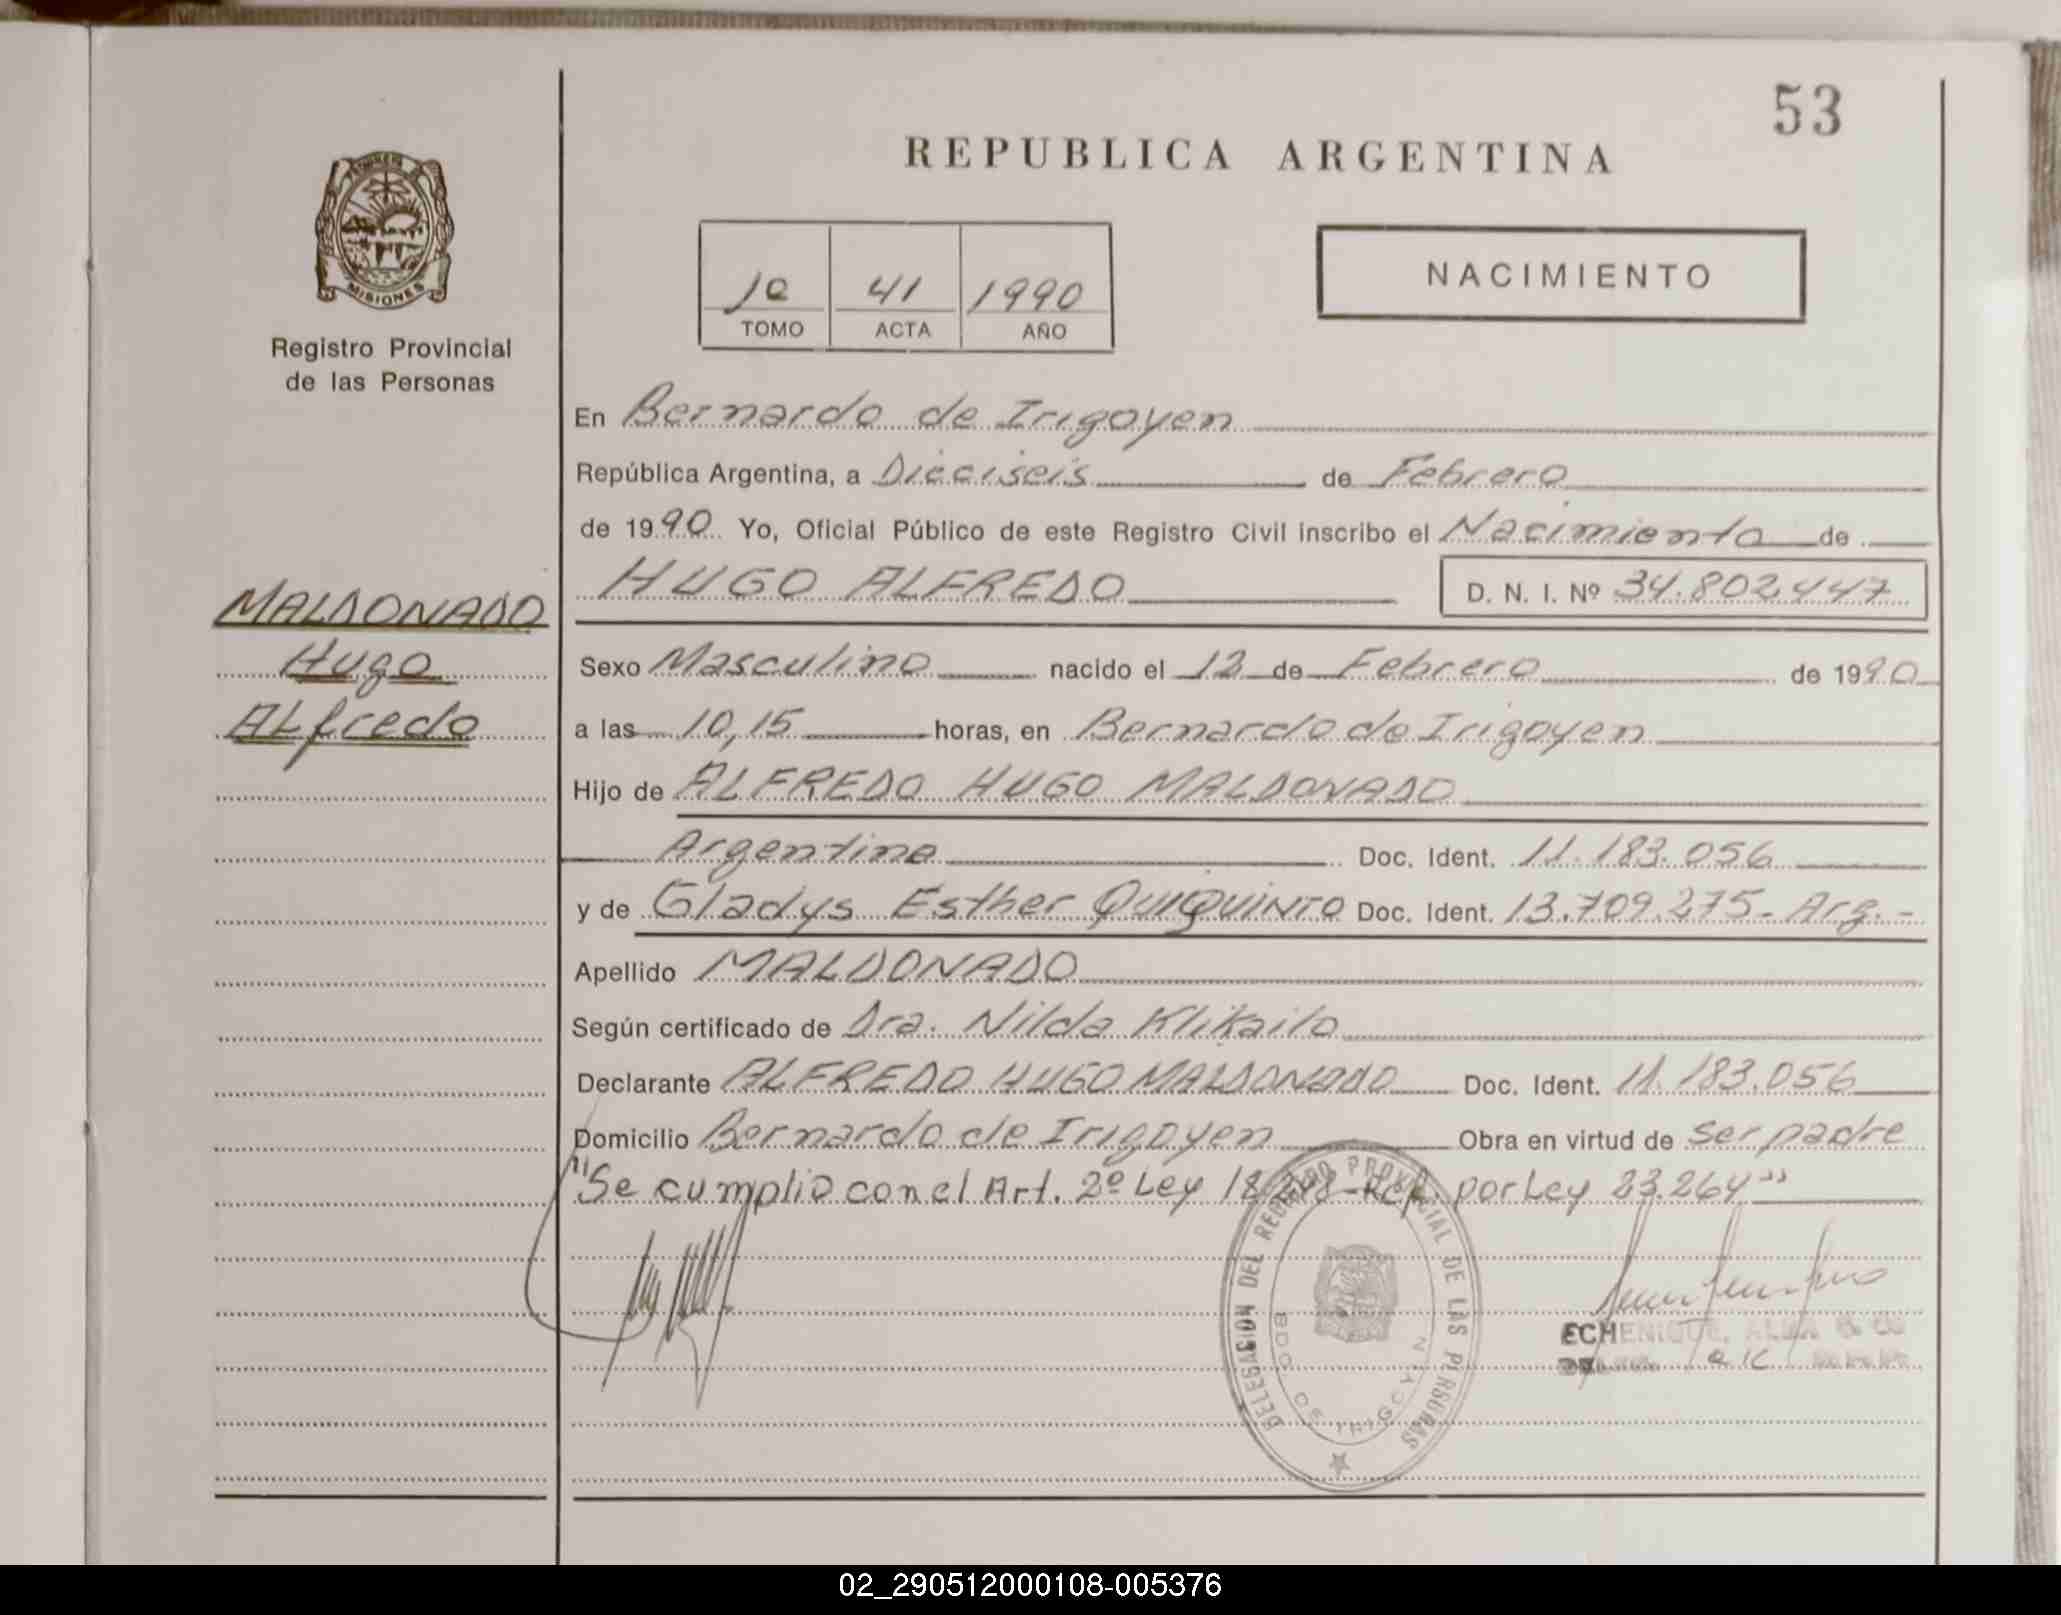 53
REPUBLICA ARGENTINA
MISIONES
Registro Provincial
de las Personas
1º 41 1990
TOMO ACTA AÑO
NACIMIENTO
En Bernardo de Irigoyen
República Argentina, a Dieciseis de Febrero
de 1990 Yo, Oficial Público de este Registro Civil inscribo el Nacimiento de
HUGO ALFREDO D. N. I. Nº 34.802.447
MALDONADO
Hugo
Alfredo
Sexo Masculino nacido el 12 de Febrero de 1990
a las 10,15 horas, en Bernardo de Irigoyen
Hijo de ALFREDO HUGO MALDONADO
Argentino Doc. Ident. 11.183.056
y de Gladys Esther QUIQUINTO Doc. Ident. 13.709.275- Arg.-
Apellido MALDONADO
Según certificado de Dra. Nilda Klikailo
Declarante ALFREDO HUGO MALDONADO Doc. Ident. 11.183.056
Domicilio Bernardo de Irigoyen Obra en virtud de ser padre
"Se cumplio con el Art. 2º Ley por Ley 23.264"
DELEGACION DEL REGISTRO PROVINCIAL DE LAS PERSONAS
BDO DE IRIGOYEN
ECHENIQUE, ALBA
02_290512000108-005376